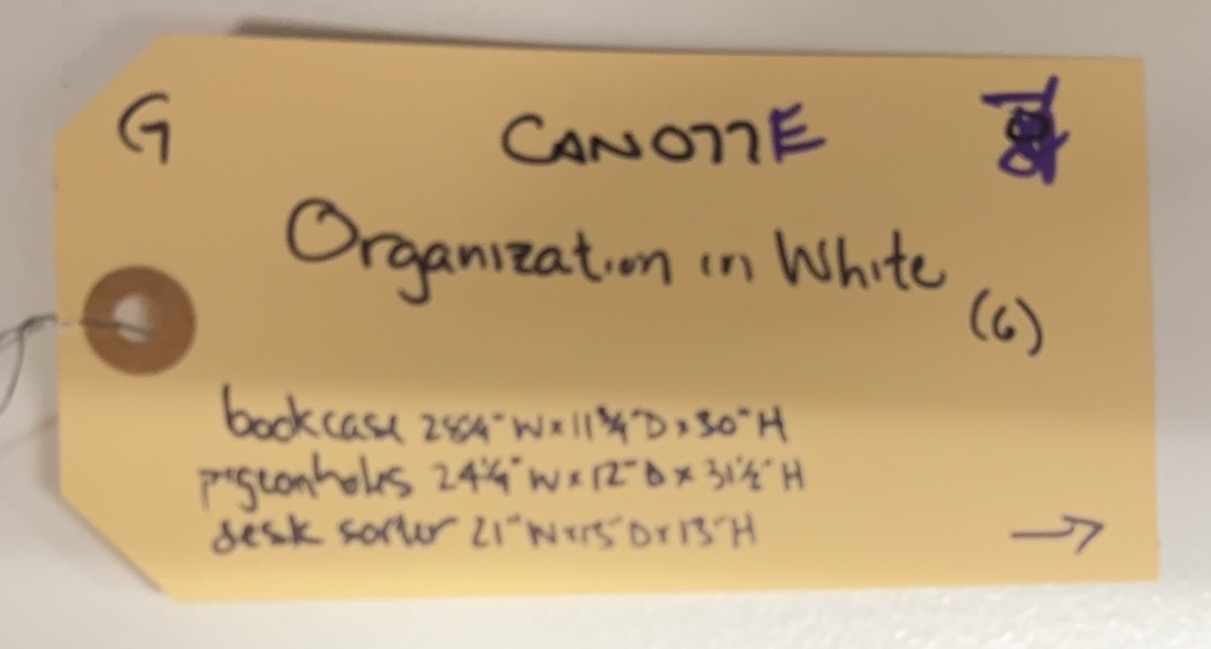 G CAN077E
Organization in White
(6)
bookcase W x 11 3/4" D x 30" H
pigeonholes 24 1/4" W x 12" D x 31 1/2" H
desk sorter 21" W x 15" D x 13" H
→